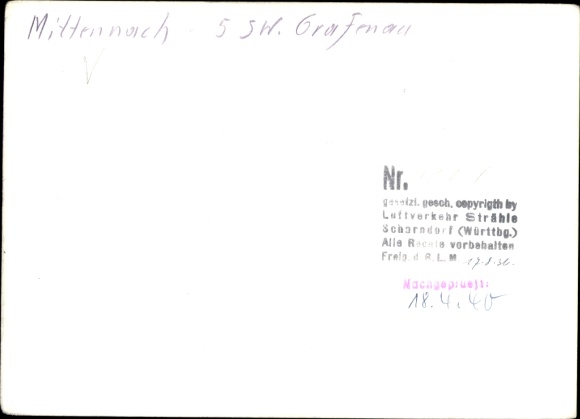 Mittennach - 5 SW. Grafenau
Nr.
gesetzl. gesch. copyrigth by
Luftverkehr Strähle
Schorndorf (Württbg.)
Alle Rechte vorbehalten
Freig. d. R. L. M 17.8.36.
Nachgeprueft:
18.4.40